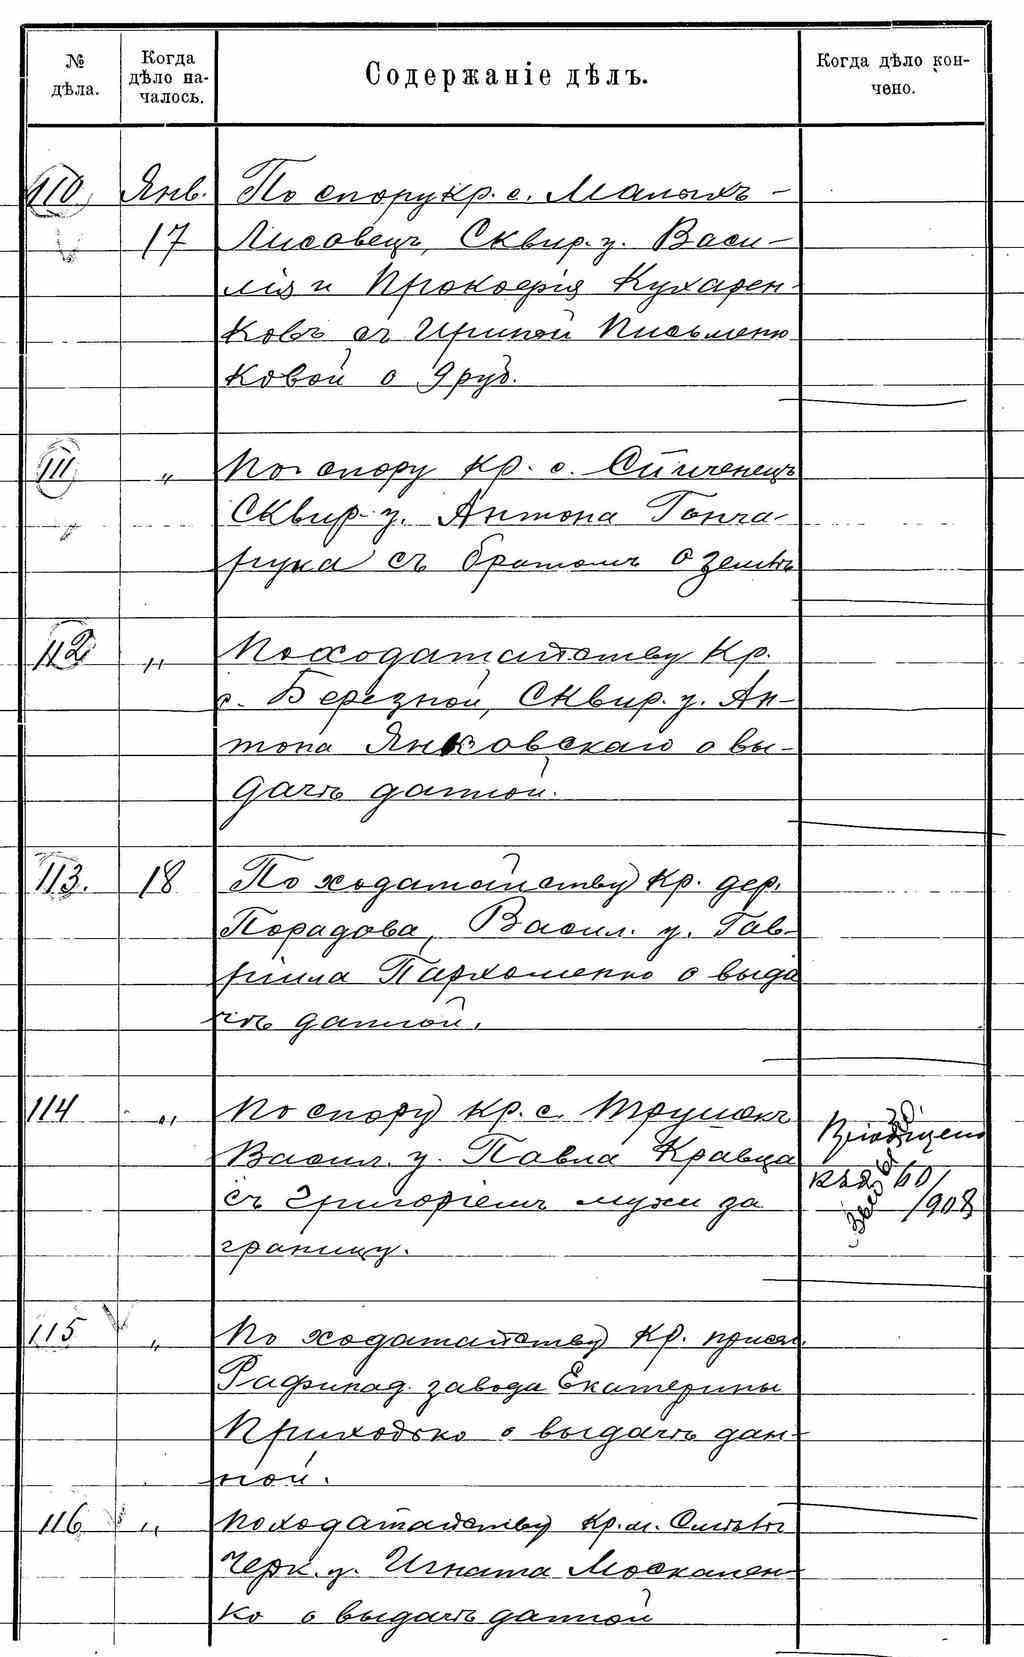 № дѣла.
Когда дѣло началось.
Содержаніе дѣлъ.
Когда дѣло кончено.
110. Янв. По спору кр. с. Малыхъ-
17 Лисовецъ, Сквир. у. Васи-
лія и Прокофія Кухарен-
ковъ съ Ириной Письменю
ковой о 9 руб.
111 „ По спору кр. с. Спиченецъ
Сквир. у. Антона Гонча-
рука съ братомъ о землѣ
112 „ По ходатайству кр.
с. Березной, Сквир. у. Ан-
тона Янковскаго о вы-
дачѣ данной.
113. 18 По ходатайству кр. дер.
Порадова, Васил. у. Гав-
ріила Пархоменко о выда
чѣ данной.
114 „ По спору кр. с. Трушекъ
Васил. у. Павла Кравца
съ Григоріемъ за
границу.
Пріобщено
къ 60/908
115 „ По ходатайству кр. присел.
Рафинад. завода Екатерины
Приходько о выдачѣ дан-
ной.
116 „ По ходатайству кр. м. Смѣлы
Черк. у. Игната Москален-
ко о выдачѣ данной